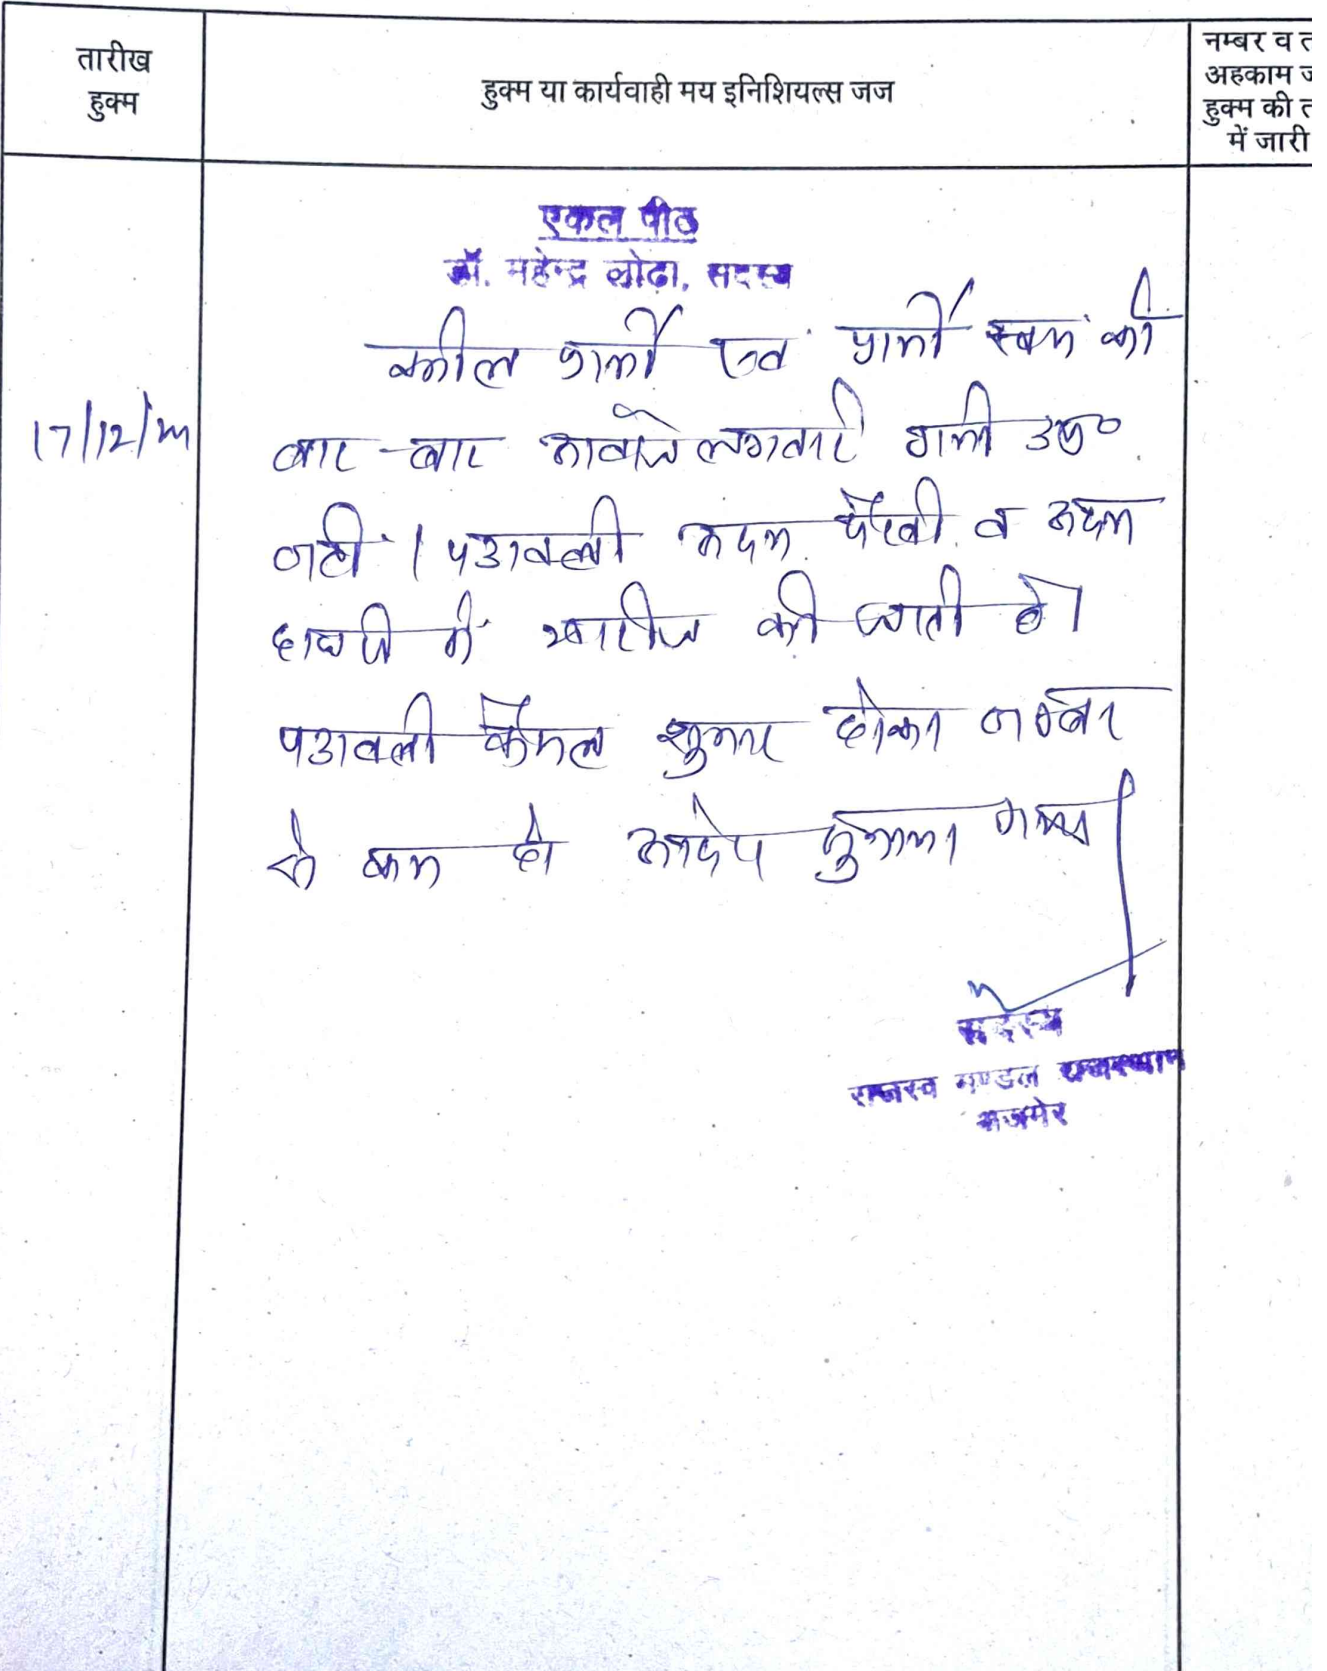 तारीख
हुक्म
हुक्म या कार्यवाही मय इनिशियल्स जज
नम्बर व त
अहकाम ज
हुक्म की त
में जारी
एकल पीठ
डॉ. महेन्द्र लोढ़ा, सदस्य
वकील प्रार्थी एवं प्रार्थी स्वयं को
17/12/
बार-बार आवाजें लगवाई गयी उप०
नहीं। पत्रावली अदम पैरवी व अदम
हाजरी में खारीज की जाती है।
पत्रावली फैसल शुमार होकर नम्बर
से कम हो आदेश सुनाया गया।
सदस्य
राजस्व मण्डल राजस्थान
अजमेर